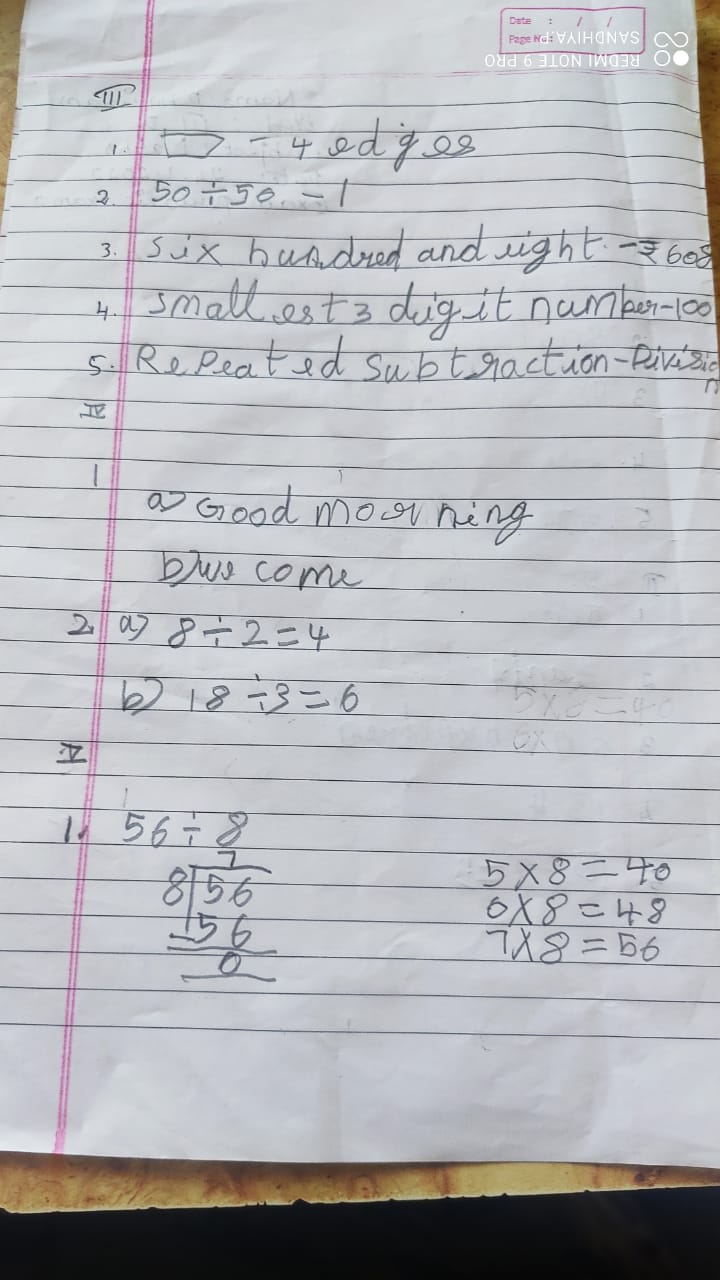 Date : / /
Page No:
REDMI NOTE 9 PRO
SANDHIYA.P
III
1. - 4 edges
2. 50 ÷ 50 - 1
3. Six hundred and eight. - ₹ 608
4. Smallest 3 digit number - 100
5. Repeated Subtraction - Division
IV
1
a) Good morning
b)
come
2. a) 8 ÷ 2 = 4
b) 18 ÷ 3 = 6
V
1. 56 ÷ 8
7
8 56
- 56
0
5 X 8 = 40
6 X 8 = 48
7 X 8 = 56